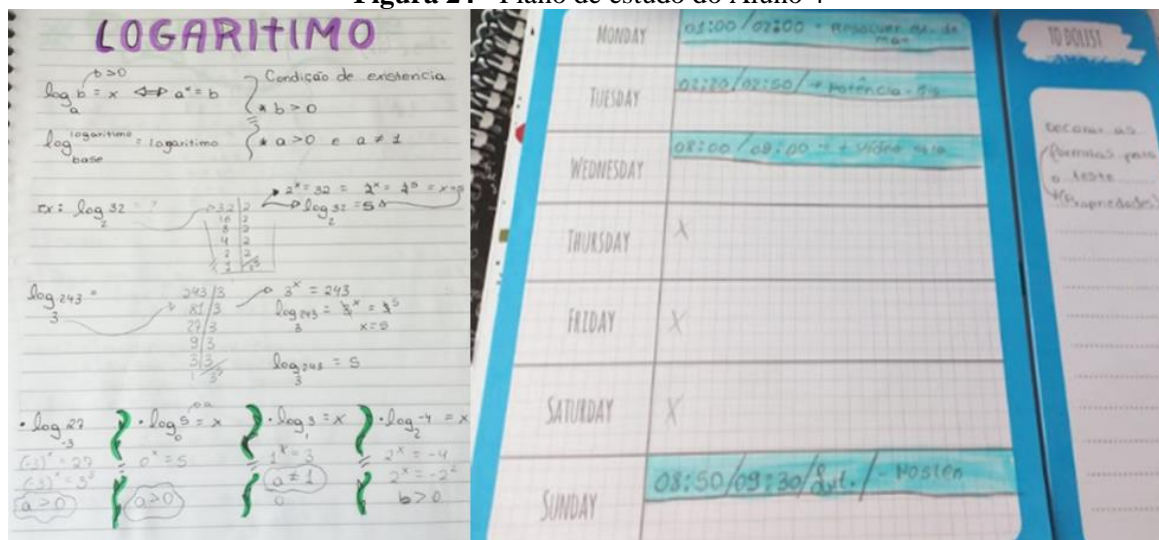 Figura 24 - Plano de estudo do Aluno 4
LOGARITIMO
b>0
log_a b = x ⟺ aˣ = b
Condição de existencia
* b > 0
* a > 0 e a ≠ 1
log_base logaritimo = logaritimo
2ˣ = 32 =
Ex: log_2 32 = ?
32 | 2
16 | 2
8 | 2
4 | 2
2 | 2
1
log_2 32 = 5
log_3 243 =
243 | 3
81 | 3
27 | 3
9 | 3
3 | 3
1
3ˣ = 243
log_3 243 =
x = 5
log_3 243 = 5
• log_-3 27
(-3)ˣ = 27
(-3)ˣ = 3³
a > 0
• log_0 5 = x
0ˣ = 5
a > 0
• log_1 3 = x
1ˣ = 3
a ≠ 1
• log_2 -4 = x
2ˣ = -4
2ˣ = -2²
b > 0
MONDAY
01:00 / 02:00 - Resolver
TUESDAY
/ 02:50 / → potência
WEDNESDAY
08:00 / 09:00 → + Vídeo
THURSDAY
X
FRIDAY
X
SATURDAY
X
SUNDAY
08:50/09:30/
TO DO LIST
Decorar as
formulas para
o teste
(Propriedades)